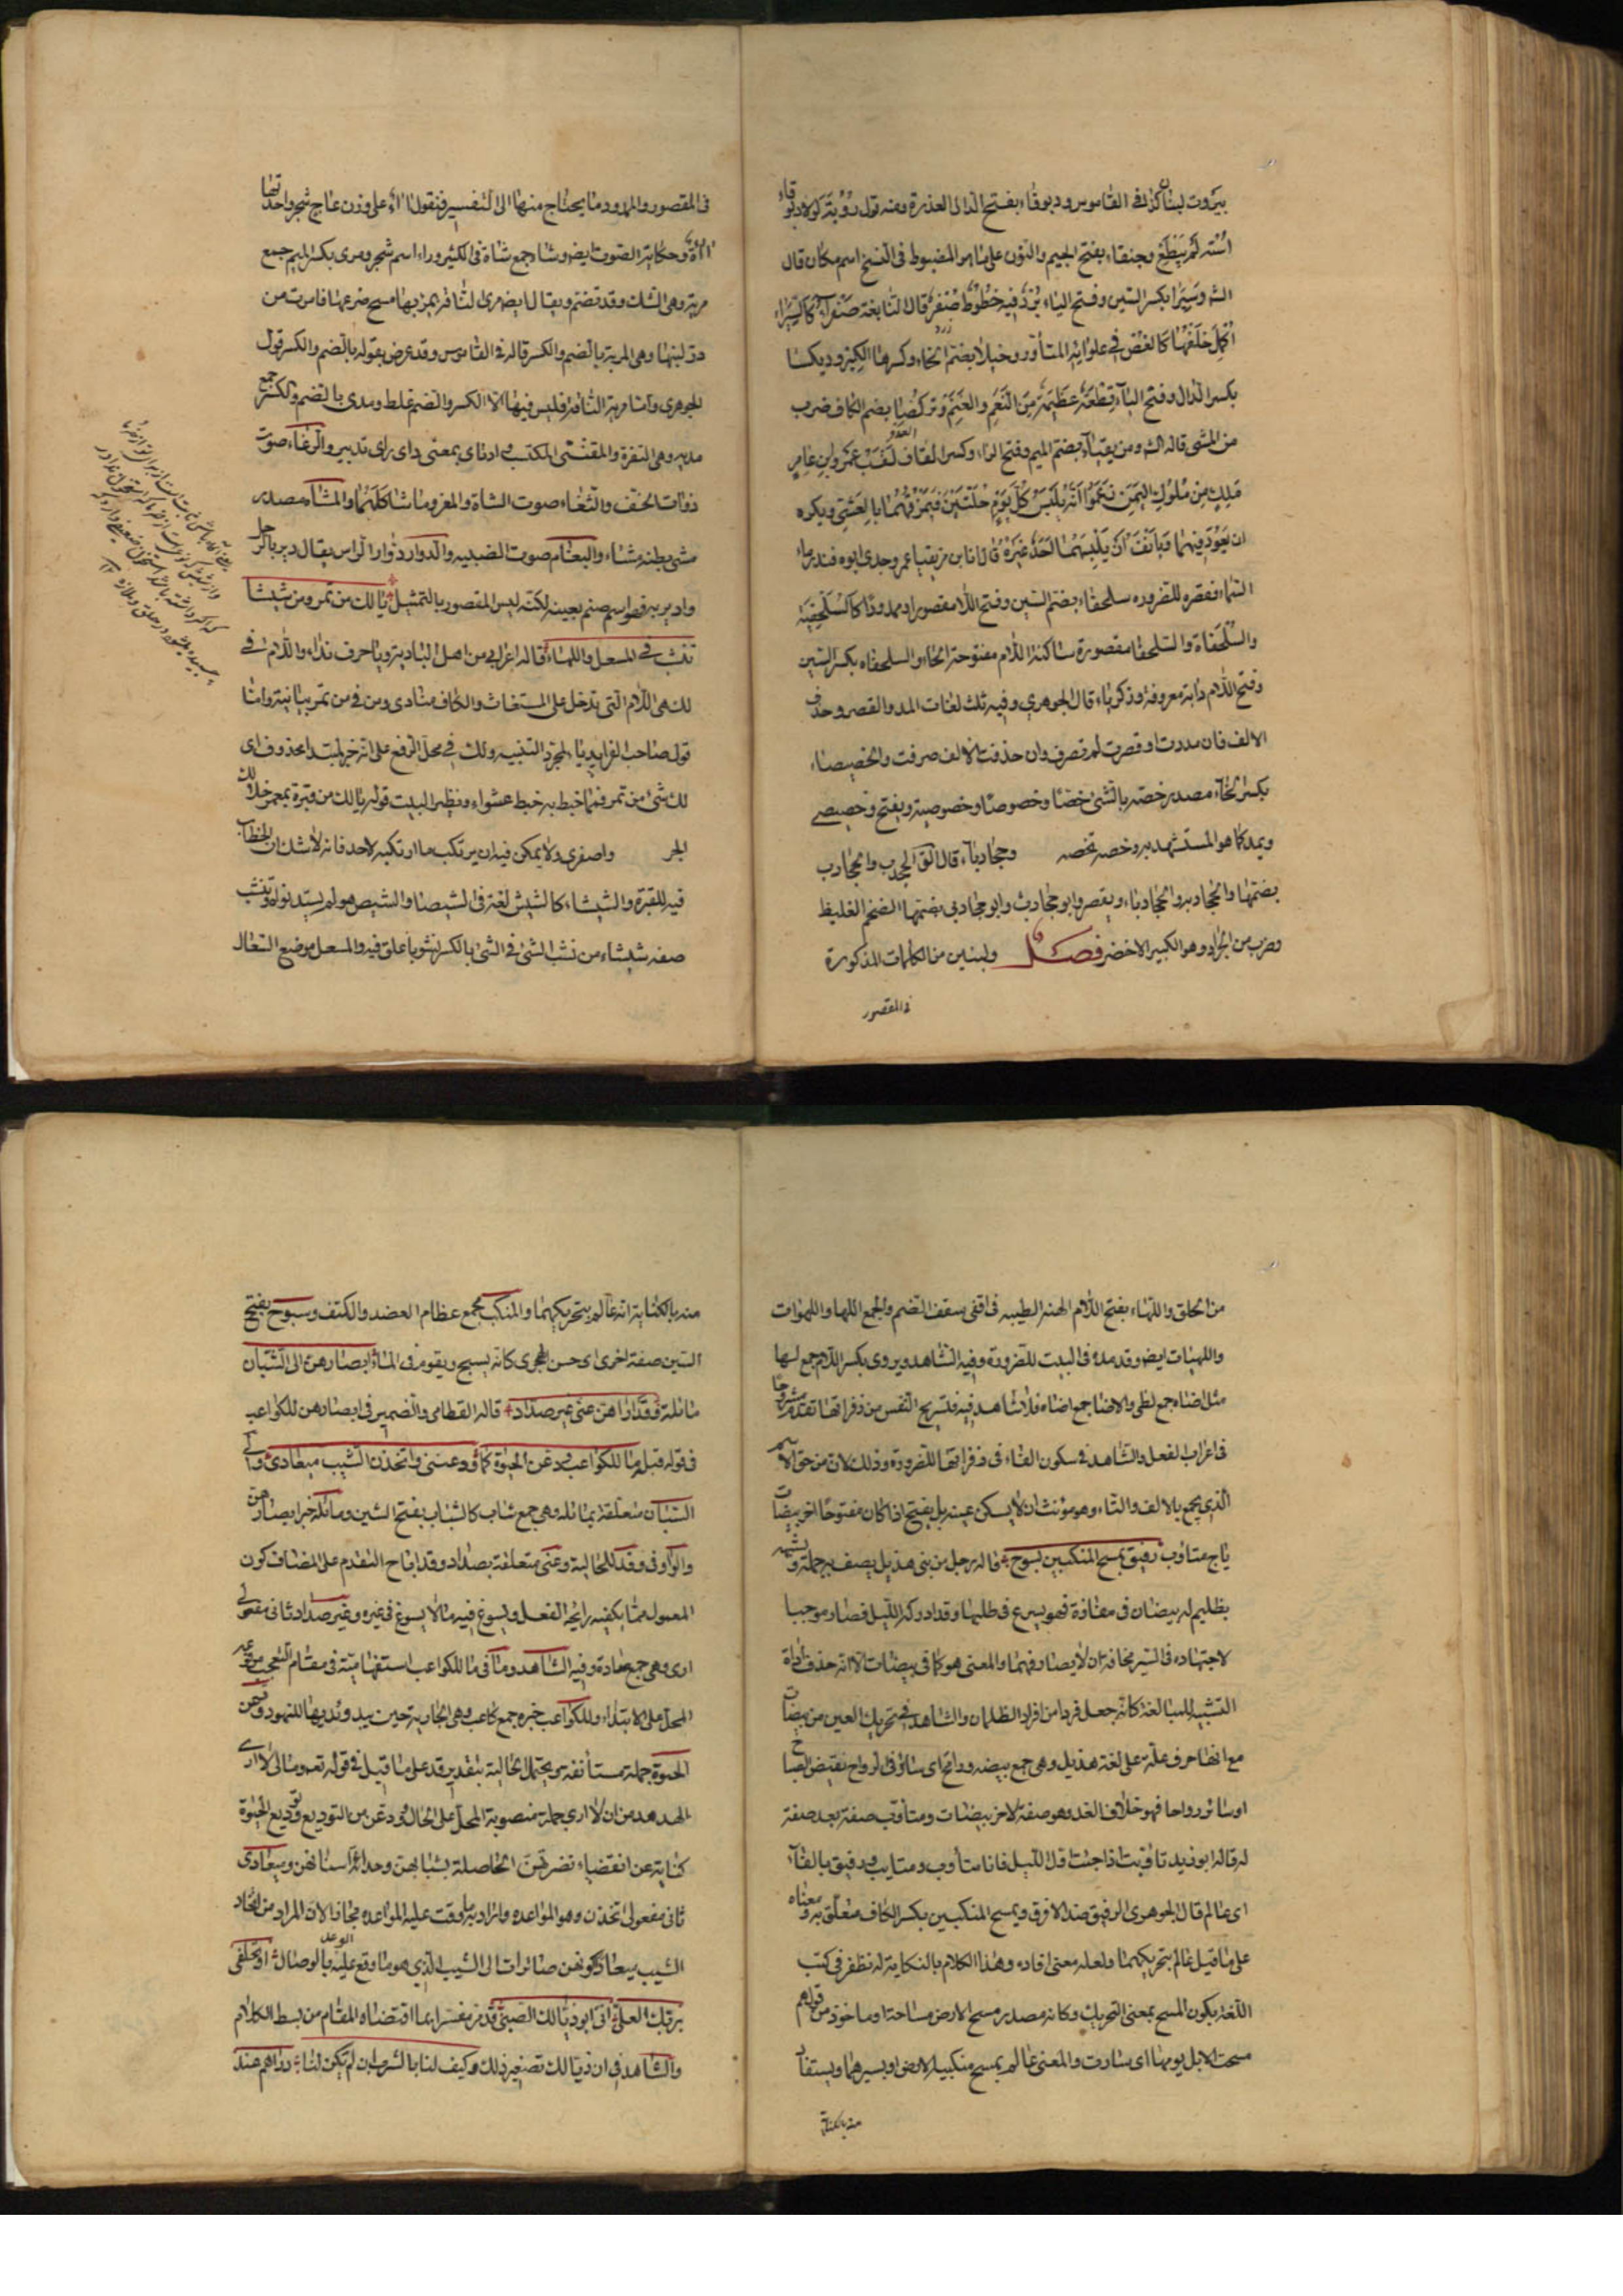 بيروت لبنان كذا في القاموس ودبوقاء بفتح الدال العذرة ومنه قول رؤبة لولا دبوقاء
استه لم يبطغ وجنفاء بفتح الجيم والنون على ما هو المضبوط في النسخ اسم مكان قال
الشه وسيرا بكسر السين وفتح الياء برد فيه خطوط صفر قال النابغة صفراء كالسيراء
اكمل خلقها كالغصن في غلوائه المتأود وخيلا بضم الخاء وكسرها الكبر وديكسا
بكسر الدال وفتح الياء قطعة عظيمة من النعم والغنم وتركضا بضم الكاف ضرب
من المشي قاله الشه ومزيقياء بضم الميم وفتح الزاء وكسر القاف لقب عمرو بن عامر
ملك من ملوك اليمن زعموا انه يلبس كل يوم حلتين فيمزقهما بالعشي ويكره
ان يعود فيهما ويأنف ان يلبسهما احد غيره قال انا ابن مزيقيا عمر وجدي ابوه منذر ماء
السماء فقصره للضروره سلحفاء بضم السين وفتح اللام مقصورا وممدودا كالسلحفية
والسلحفاة والسلحفا مقصورة ساكنة اللام مفتوحة الحاء والسلحفاه بكسر السين
وفتح اللام دابة معروفة وذكرياء قال الجوهري وفيه ثلث لغات المد والقصر وحذف
الالف فان مددت او قصرت لم تصرف وان حذفت الالف صرفت والخصيصاء
بكسر الخاء مصدر خصه بالشئ خصا وخصوصا وخصوصية ويفتح وخصيصى
ويمد كما هو المستشهد به وخصه تخصه وجخادباء قال الق الجخدب والجخادب
بضمها والجخادبه والجخادباء ويقصر وابو جخادب وابو جخادبى بضمها الضخم الغليظ
وضرب من الجراد وهو الكبير الاخضر فصل ولنبين من الكلمات المذكورة
في المقصور
في المقصور والممدود ما يحتاج منها الى التفسير فنقول الاء على وزن عاع شجر واحدتها
الاءة وحكاية الصوت ايضه وشاء جمع شاة في الكثير وراء اسم شجر ومرى بكسر الميم جمع
مرية وهي الشك وقد تضم ويقال ايضه مرى الناقه امربها مسح ضرعها فامرت من
در لبنها وهي المرية بالضم والكسر قاله في القاموس وقد عرض بقوله بالضم والكسر قول
الجوهري واما مرية الناقة فليس فيها الا الكسر والضم غلط ومدى بالضم والكسر جمع
مديه وهي الشفرة والمقتنى المكتسب ادناى بمعنى داى راى تدبير والرغاء صوت
ذوات الخف والثغاء صوت الشاة والمعز وما شاكلهما والمشاء مصدر
مشى بطنه مشاء والبغام صوت الظبيه والدوار دوار الراس يقال دير بالرجل
وادير به فهو اسم صنم بعينه لكنه ليس المقصور بالتمثيل يا لك من تمر ومن شيشا
ينشب في المسعل واللهاء قاله اعرابي من اهل البادية ويا حرف نداء واللام في
لك هي اللام التي تدخل على المستغاث والكاف منادى ومن في من تمر بيانية واما
قول صاحب الفرايد يا لمجرد التنبيه ولك في محل الرفع على انه خبر لمبتدا محذوف اى
لك شئ من تمر فما خبط به خبط عشواء ونظير البيت قوله يا لك من قبرة بمعمر خلا لك
الجر واصفري ولا يمكن فيه ان يرتكب ما ارتكبه لاحد فانه لا شك ان الخطاب
فيه للقبرة والشيشاء كالشيش لغة في الشيصا والشيص هو لم يشتد نواه وينشب
صفه شيشاء من نشب الشئ في الشئ بالكسر نشوبا علق فيه والمسعل موضع السعال
من الحلق واللهاء بفتح اللام الهنة الطيبه في اقصى سقف الفم والجمع اللها واللهوات
واللهيات ايضه وقد مده في البيت للضرورة وفيه الشاهد ويروى بكسر اللام جمع لها
مثل اضاء جمع لظى والاضا جمع اضاه فلا شاهد فيه فتستريح النفس من زفراتها تقدم مشروحا
في اعراب الفعل والشاهد في سكون الفاء في زفراتها للضرورة وذلك لان من حق الاسم
الذي يجمع بالالف والتاء وهو مؤنث ان لا يسكن عينه بل يفتح اذا كان مفتوحا اخو بيضات
رايح متاوب رفيق بمسح المنكبين سبوح قاله رجل من بني هذيل يصف به جمله ويشبهه
بظليم له بيضان في مفازة فهو يسرع في طلبها وقد ادركه الليل فصار موجبا
لاجتهاده في السير مخافة ان لا يصادفهما والمعنى هو كاخى بيضات الا انه حذف اداة
التشبيه للمبالغة كانه جعل فردا من افراد الظلمان والشاهد في تحريك العين من بيضات
مع انها حرف علة على لغة هذيل وهي جمع بيضه ورايح اى سائر في الرواح نقيض الصباح
او سائر رواحا فهو خلاف الغد وهو صفة لاخو بيضات ومتاوب صفة بعد صفة
له قاله ابو زيد تاوبت اذا جئت اول الليل فانا متأوب ومتايب ورفيق بالفاء
اى عالم قال الجوهري الرفيق ضد الاخرق وبمسح المنكبين بكسر الكاف متعلق به ومعناه
على ما قيل عالم بتحريكهما ولعله معنى افاده وهذا الكلام بالنكاية له نظفر في كتب
اللغة بكون المسح بمعنى التحريك وكانه مصدر مسح الارض مساحة او ماخوذ من قولهم
مسحت الابل يومها اى سارت والمعنى عالم بمسح منكبيه الارض او بسيرهما ويستفاد
منه بالكناية
منه بالكناية انه عالم بتحريكهما والمنكب مجمع عظام العضد والكتف وسبوح بفتح
السين صفة اخرى اى حسن الجرى كانه يسبح ويقوم في الماء ابصارهن الى الشبان
مائلة وقد اراهن عنى غير صداد قاله القطامي والضمير في ابصارهن للكواعب
في قوله قبل ما للكواعب ودعن الحيوة كما ودعننى واتخذن الشيب ميعادى والى
الشبان متعلقة بمائله وهي جمع شاب كالشباب بفتح الشين ومائلة خبر ابصارهن
والواو في وقد للحالية وعنى متعلقة بصداد وقد اباح التقدم على المضاف كون
المعمول مما يكفيه رايحة الفعل ويسوغ فيه ما لا يسوغ في غيره وغير صداد ثانى مفعولى
ارى وهي جمع صادة وفيه الشاهد وما في ما للكواعب استفهامية في مقام التعجب مرفوعه
المحل على الابتداء وللكواعب خبره جمع كاعب وهي الجارية حين يبدو ثديها للنهود ودعن
الحيوة جملة مستأنفة ويحتمل الحالية بتقدير قد على ما قيل في قوله تعه ومالى لا ارى
الهدهد من ان لا ارى جملة منصوبة المحل على الحال وودعن من التوديع وتوديع الحيوة
كناية عن انقضاء نضرتهن الحاصلة بشبابهن وحداثة اسنانهن وميعادى
ثانى مفعولى اتخذن وهو المواعده والمراد به ما وقعت عليه المواعده مجازا لان المراد من اتخاذ
الشيب ميعادا كونهن صائرات الى الشيب الذي هو ما وقع عليه الوعد بالوصال او تحلفى
بربك العلى انى ابو ذيالك الصبى قد مر مفسرا بما اقتضاه المقام من بسط الكلام
والشاهد في ان ذيالك تصغير ذلك وكيف لنا بالشرب ان لم يكن لنا دراهم عند